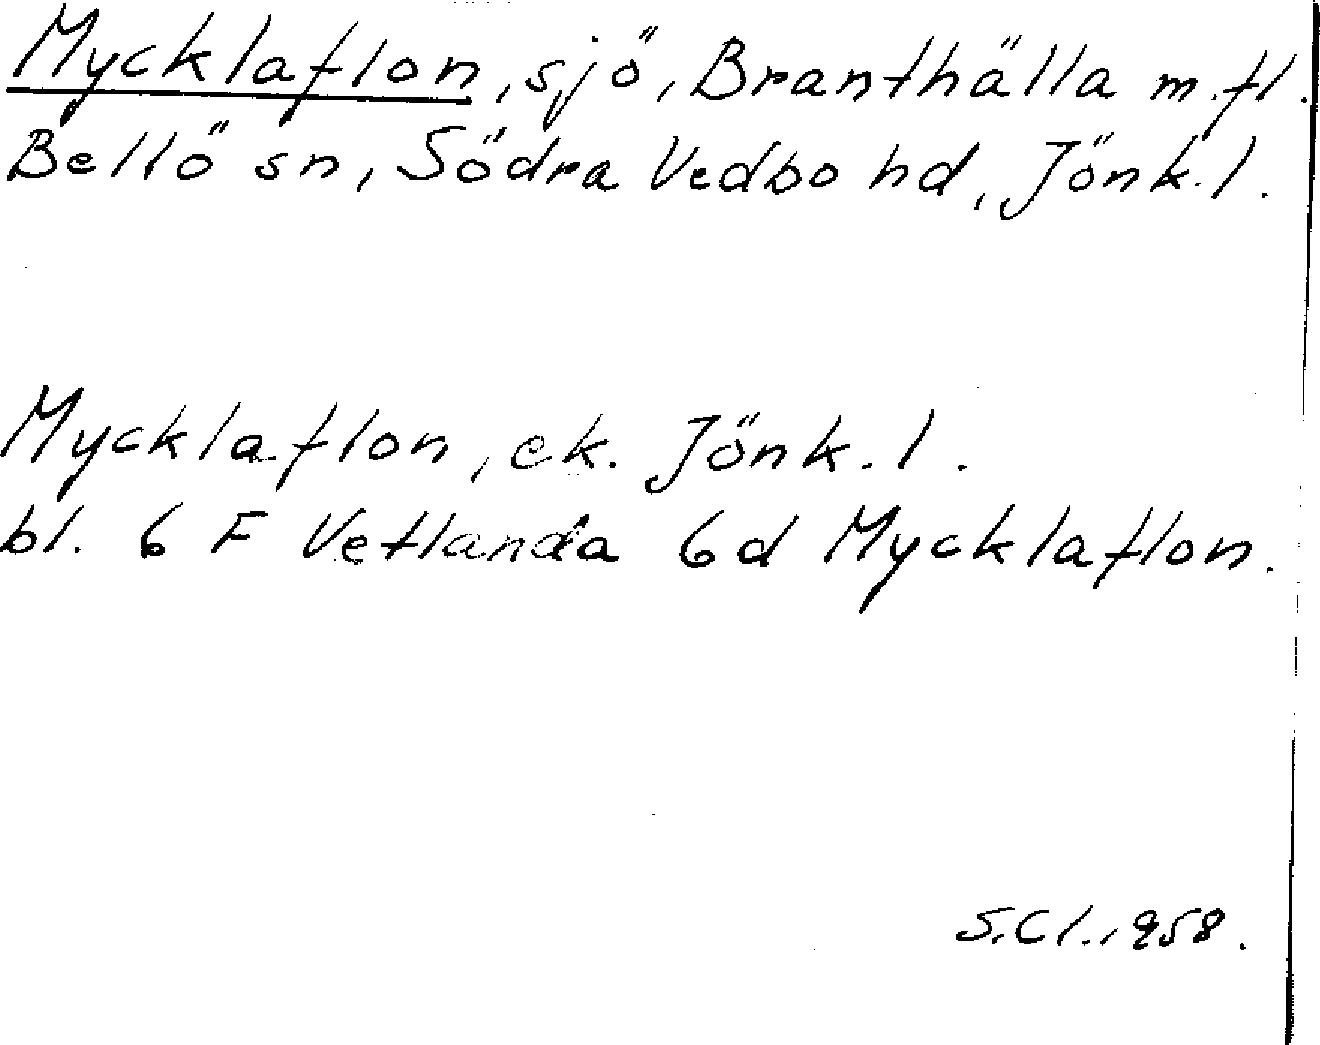 Mycklaflon, sjö, Branthälla m.fl.
Bellö sn, Södra Vedbo hd, Jönk.l.
Mycklaflon, ek. Jönk.l.
bl. 6 F Vetlanda 6d Mycklaflon.
S.Cl. 1958.